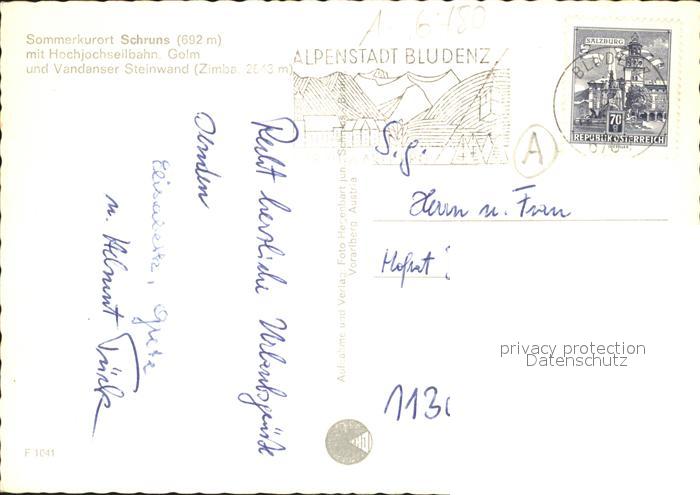 Sommerkurort Schruns (692 m)
mit Hochjochseilbahn, Golm
und Vandanser Steinwand (Zimba, 2643 m)
ALPENSTADT BLUDENZ
SALZBURG
70
REPUBLIK ÖSTERREICH
BLUDENZ
A
S.g.
Herrn u. Frau
Hofrat
113
privacy protection
Datenschutz
Recht herzliche Urlaubsgrüße
senden
Elisabeth, Grete
u. Helmut Türk
Aufnahme und Verlag: Foto Heinenhart jun., Schruns
Vorarlberg Austria
F 1041